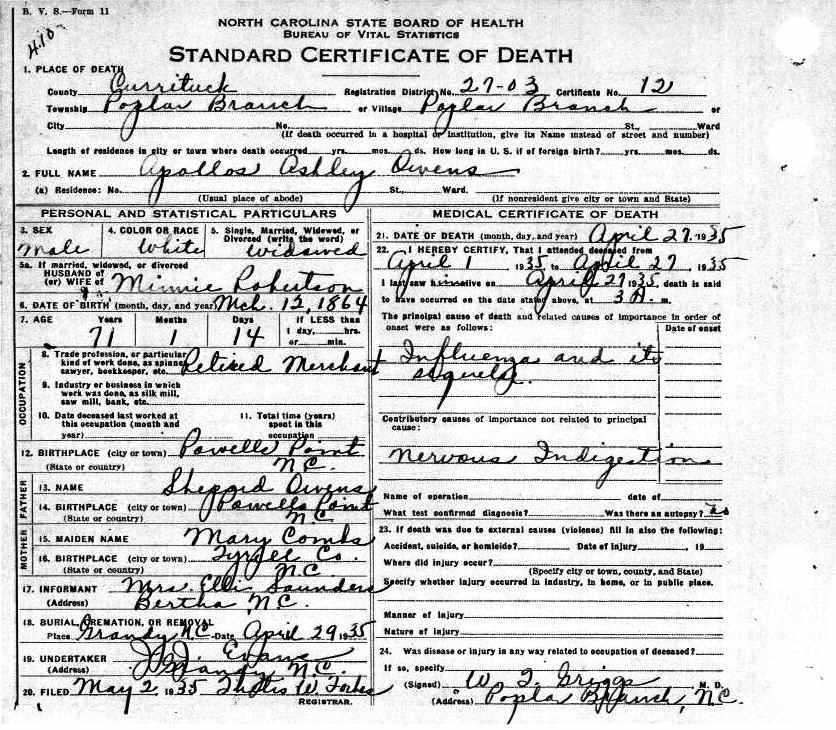 B. V. S.—Form 11
NORTH CAROLINA STATE BOARD OF HEALTH
BUREAU OF VITAL STATISTICS
STANDARD CERTIFICATE OF DEATH
410
1. PLACE OF DEATH
County Currituck Registration District No. 27-03 Certificate No. 12
Township Poplar Branch or Village Poplar Branch or
City No. St., Ward
(If death occurred in a hospital or institution, give its Name instead of street and number)
Length of residence in city or town where death occurred yrs. mos. ds. How long in U. S. if of foreign birth? yrs. mos. ds.
2. FULL NAME Apollos Ashley Owens
(a) Residence: No. St., Ward.
(Usual place of abode) (If nonresident give city or town and State)
PERSONAL AND STATISTICAL PARTICULARS
3. SEX 4. COLOR OR RACE 5. Single, Married, Widowed, or
Divorced (write the word)
Male White Widowed
5a. If married, widowed, or divorced
HUSBAND of
(or) WIFE of Minnie Robertson
6. DATE OF BIRTH (month, day, and year) Mch. 12, 1864
7. AGE Years Months Days If LESS than
1 day, hrs.
or min.
71 1 14
OCCUPATION
8. Trade profession, or particular
kind of work done, as spinner,
sawyer, bookkeeper, etc. Retired Merchant
9. Industry or business in which
work was done, as silk mill,
saw mill, bank, etc.
10. Date deceased last worked at
this occupation (month and
year)
11. Total time (years)
spent in this
occupation
12. BIRTHPLACE (city or town) Powells Point
(State or country) N.C.
FATHER
13. NAME Shepard Owens
14. BIRTHPLACE (city or town) Powells Point
(State or country) N.C
MOTHER
15. MAIDEN NAME Mary Combs
16. BIRTHPLACE (city or town) Tyrrell Co.
(State or country) N.C
17. INFORMANT Mrs. Saunders
(Address) Bertha N.C.
18. BURIAL, CREMATION, OR REMOVAL
Place Grandy N.C. Date April 29 1935
19. UNDERTAKER Evans
(Address) Grandy N.C.
20. FILED May 2, 1935 W. Forbes
REGISTRAR.
MEDICAL CERTIFICATE OF DEATH
21. DATE OF DEATH (month, day, and year) April 27, 1935
22. I HEREBY CERTIFY, That I attended deceased from
April 1 1935 to April 27, 1935
I last saw him alive on April 27 1935, death is said
to have occurred on the date stated above, at 3 A. m.
The principal cause of death and related causes of importance in order of
onset were as follows: Date of onset
Influenza and its
sequelae.
Contributory causes of importance not related to principal
cause:
Nervous Indigestion
Name of operation date of
What test confirmed diagnosis? Was there an autopsy? no
23. If death was due to external causes (violence) fill in also the following:
Accident, suicide, or homicide? Date of injury , 19
Where did injury occur?
(Specify city or town, county, and State)
Specify whether injury occurred in industry, in home, or in public place.
Manner of injury
Nature of injury
24. Was disease or injury in any way related to occupation of deceased?
If so, specify
(Signed) W. T. Griggs M. D.
(Address) Poplar Branch, N.C.